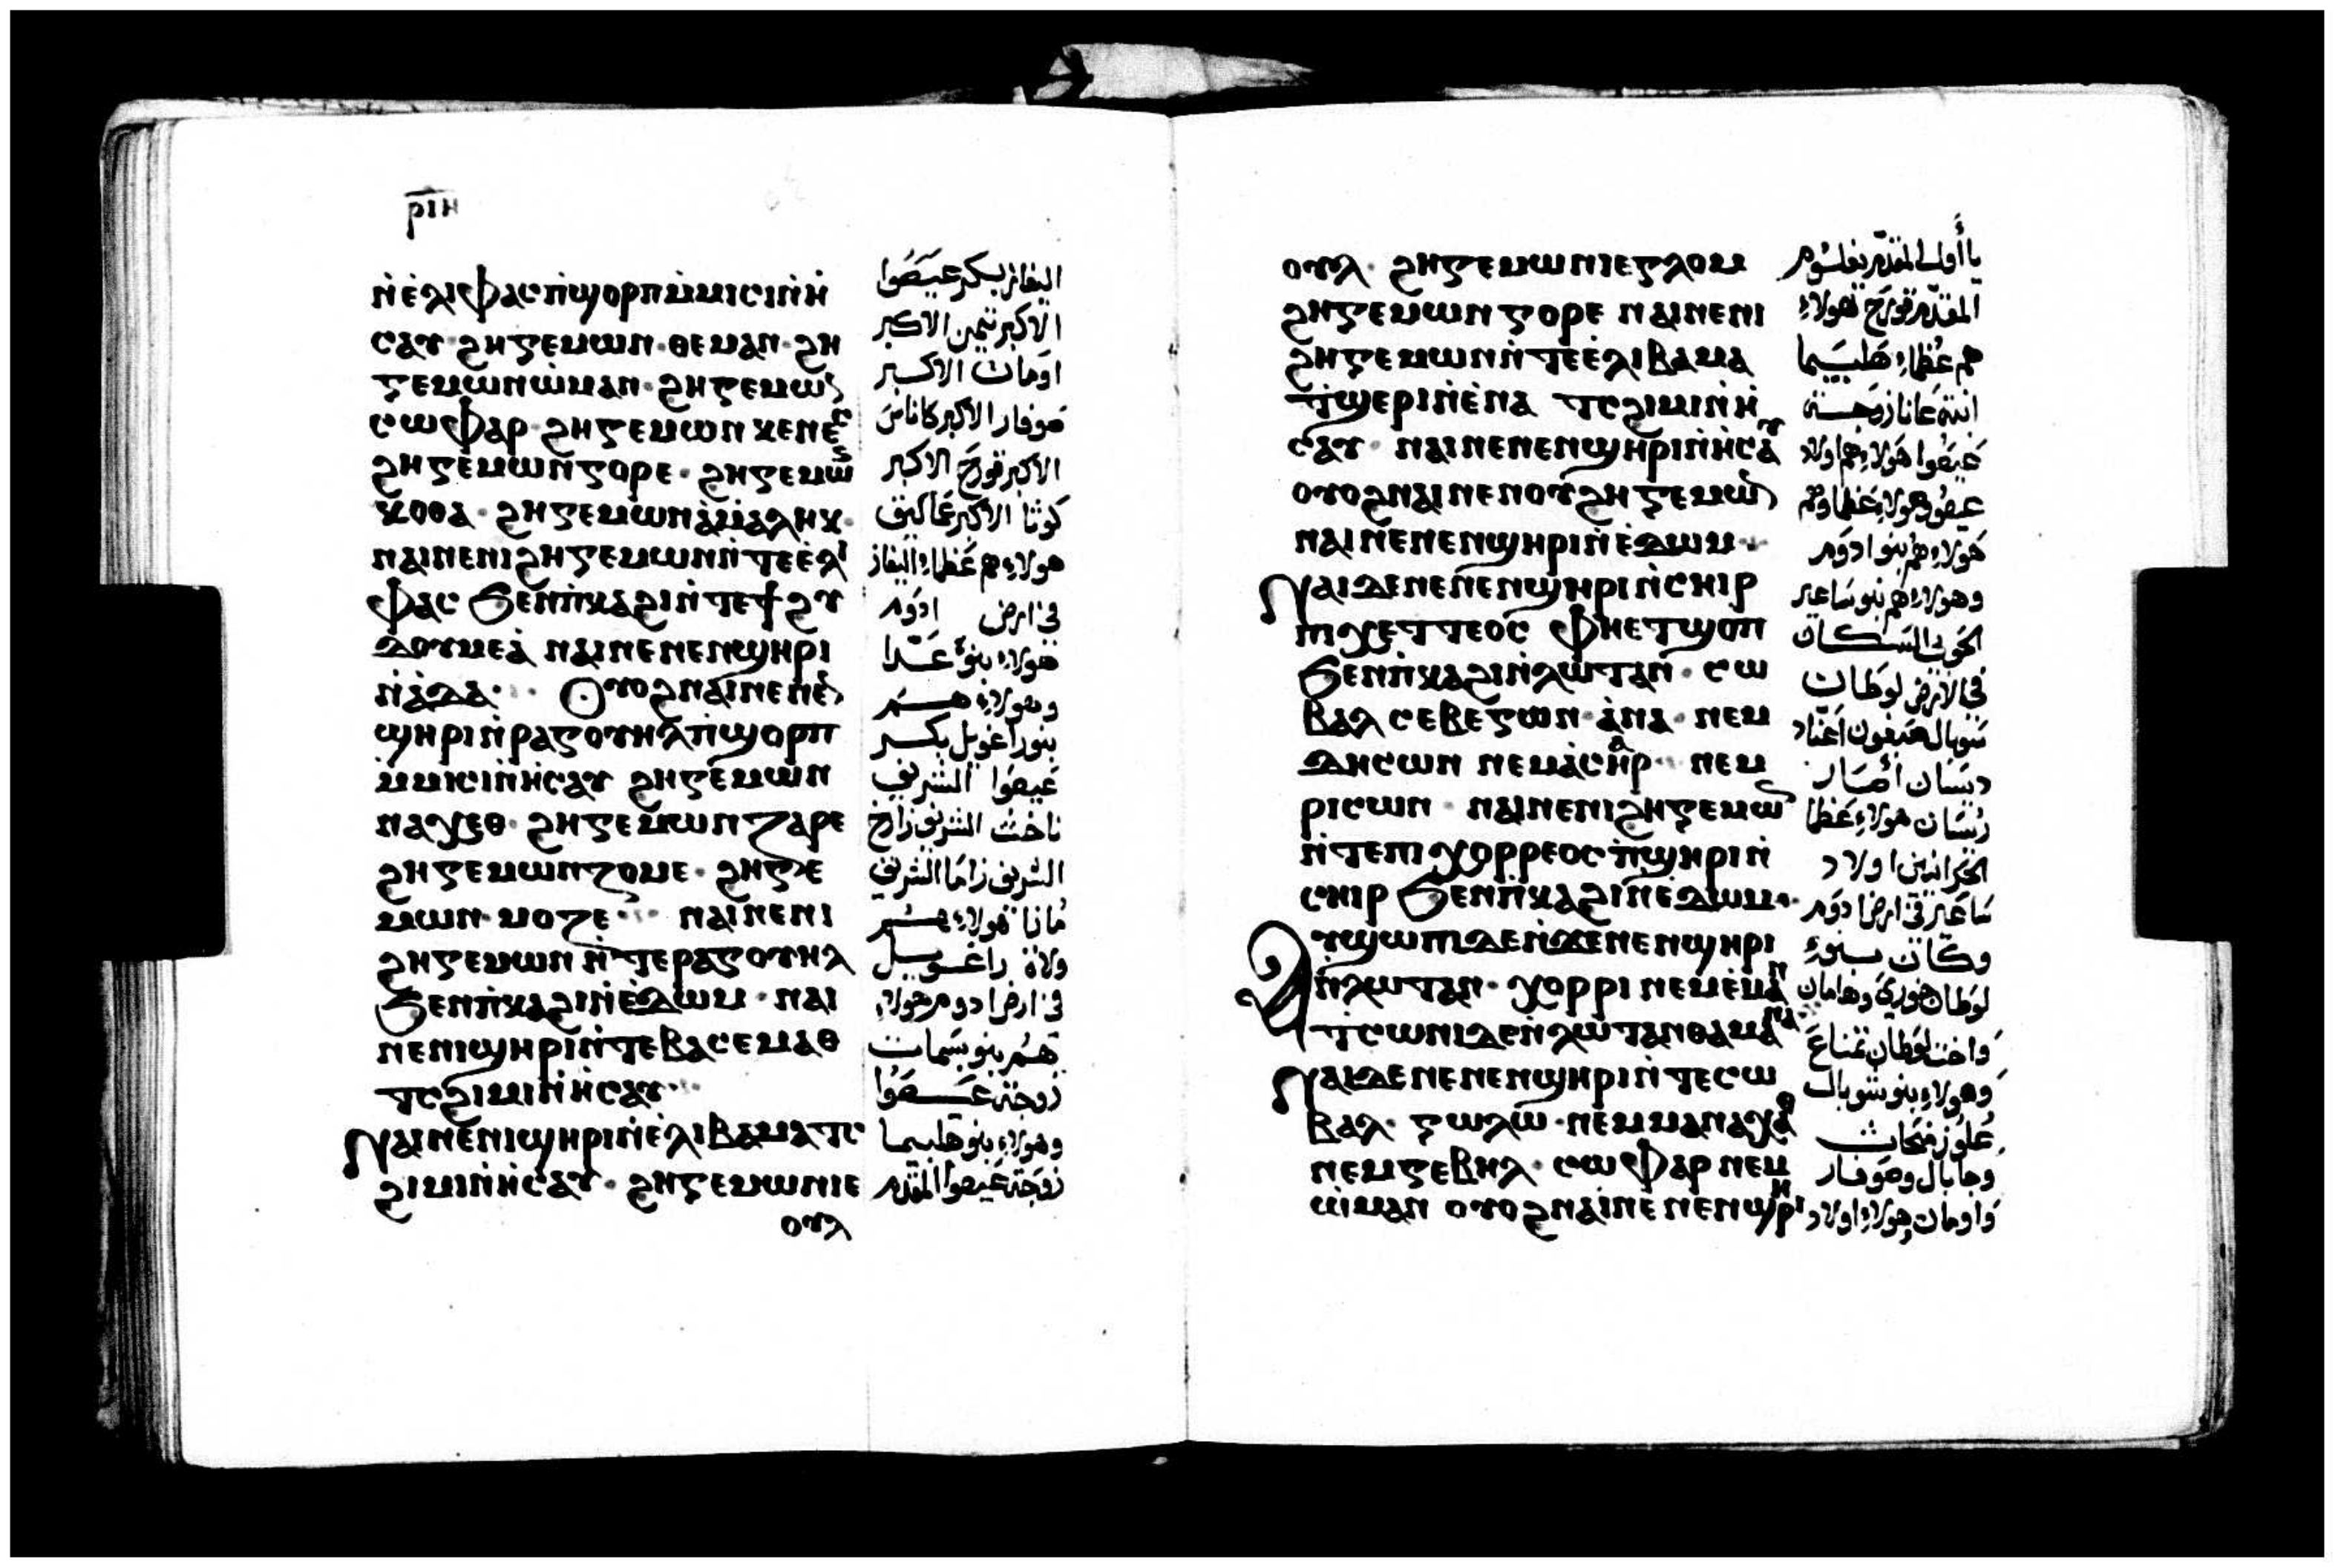 ⲣⲓⲏ
ⲛ̀ⲉ̀ⲗⲓⲫⲁⲥ ⲡ̀ϣⲟⲣⲡ ⲙ̀ⲙⲓⲥⲓ ⲛ̀ⲏ̀
ⲥⲁⲩ · ϩⲏⲅⲉⲙⲱⲛ · ⲑⲉⲙⲁⲛ · ϩⲏ
ⲅⲉⲙⲱⲛ ⲱ̀ⲙⲁⲛ · ϩⲏⲅⲉⲙⲱⲛ
ⲥⲱⲫⲁⲣ · ϩⲏⲅⲉⲙⲱⲛ ⲕⲉⲛⲉⲥ
ϩⲏⲅⲉⲙⲱⲛ ⲅⲟⲣⲉ · ϩⲏⲅⲉⲙⲱⲛ
ⲭⲟⲑⲁ · ϩⲏⲅⲉⲙⲱⲛ ⲁ̀ⲙⲁⲗⲏⲕ ·
ⲛⲁⲓ ⲛⲉ ⲛⲓϩⲏⲅⲉⲙⲱⲛ ⲛ̀ⲧⲉ ⲉ̀ⲗⲓ
ⲫⲁⲥ ϧⲉⲛ ⲡ̀ⲕⲁϩⲓ ⲛ̀ⲧⲉ ϯϩⲩ
ⲇⲟⲩⲙⲉⲁ̀ ⲛⲁⲓ ⲛⲉ ⲛⲉⲛϣⲏⲣⲓ
ⲛ̀ⲁ̀ⲇⲁ · ⲟⲩⲟϩ ⲛⲁⲓ ⲛⲉ ⲛⲉⲛ
ϣⲏⲣⲓ ⲛ̀ⲣⲁⲅⲟⲩⲏⲗ ⲡ̀ϣⲟⲣⲡ
ⲙ̀ⲙⲓⲥⲓ ⲛ̀ⲏ̀ⲥⲁⲩ ϩⲏⲅⲉⲙⲱⲛ
ⲛⲁⲭⲉⲑ · ϩⲏⲅⲉⲙⲱⲛ ⲍⲁⲣⲉ
ϩⲏⲅⲉⲙⲱⲛ ⲍⲟⲙⲉ · ϩⲏⲅⲉ
ⲙⲱⲛ · ⲙⲟⲍⲉ · ⲛⲁⲓ ⲛⲉ ⲛⲓ
ϩⲏⲅⲉⲙⲱⲛ ⲛ̀ⲧⲉ ⲣⲁⲅⲟⲩⲏⲗ
ϧⲉⲛ ⲡ̀ⲕⲁϩⲓ ⲛ̀ⲉ̀ⲇⲱⲙ · ⲛⲁⲓ
ⲛⲉ ⲛⲓϣⲏⲣⲓ ⲛ̀ⲧⲉ ⲃⲁⲥⲉⲙⲁⲑ
ⲧ̀ⲥϩⲓⲙⲓ ⲛ̀ⲏ̀ⲥⲁⲩ ·
ⲛⲁⲓ ⲛⲉ ⲛⲓϣⲏⲣⲓ ⲛ̀ⲉ̀ⲗⲓⲃⲁⲙⲁ ⲧⲥ
ϩⲓⲙⲓ ⲛ̀ⲏ̀ⲥⲁⲩ · ϩⲏⲅⲉⲙⲱⲛ ⲓⲉ
ⲟⲩⲗ
اليفاز بكر عيصوا
الاكبر تيمن الاكبر
اومان الاكبر
صوفار الاكبر كاناس
الاكبر قورح الاكبر
كوثا الاكبر عماليق
هولاء هم عظماء اليفاز
فى ارض ادوم
هولاء بنو عدا
وهولاء هم
بنو راغويل بكر
عيصوا الشريف
ناخث الشريف زارح
الشريف زاما الشريف
مازا هولاء هم
ولاة راغويل
فى ارض ادوم هولاء
هم بنو بسمات
زوجة عيصوا
وهولاء بنو هليبما
زوجة عيصوا المقدم
ⲟⲩⲗ · ϩⲏⲅⲉⲙⲱⲛ ⲓⲉⲅⲗⲟⲙ
ϩⲏⲅⲉⲙⲱⲛ ⲅⲟⲣⲉ ⲛⲁⲓ ⲛⲉ ⲛⲓ
ϩⲏⲅⲉⲙⲱⲛ ⲛ̀ⲧⲉ ⲉ̀ⲗⲓⲃⲁⲙⲁ
ⲧ̀ϣⲉⲣⲓ ⲛ̀ⲉ̀ⲛⲁ ⲧⲥϩⲓⲙⲓ ⲛ̀ⲏ̀
ⲥⲁⲩ · ⲛⲁⲓ ⲛⲉ ⲛⲉⲛϣⲏⲣⲓ ⲛ̀ⲏ̀ⲥⲁⲩ
ⲟⲩⲟϩ ⲛⲁⲓ ⲛⲉ ⲛⲟⲩϩⲏⲅⲉⲙⲱⲛ
ⲛⲁⲓ ⲛⲉ ⲛⲉⲛϣⲏⲣⲓ ⲛ̀ⲉ̀ⲇⲱⲙ ·
ⲛⲁⲓ ⲇⲉ ⲛⲉ ⲛⲉⲛϣⲏⲣⲓ ⲛ̀ⲥⲏⲓⲣ
ⲡⲓⲭⲉⲧⲧⲉⲟⲥ ⲫⲏ ⲉⲧϣⲟⲡ
ϧⲉⲛ ⲡ̀ⲕⲁϩⲓ ⲛ̀ⲗⲱⲧⲁⲛ · ⲥⲱ
ⲃⲁⲗ ⲥⲉⲃⲉⲅⲱⲛ · ⲁ̀ⲛⲁ · ⲛⲉⲙ
ⲇⲏⲥⲱⲛ ⲛⲉⲙ ⲁ̀ⲥⲁⲣ · ⲛⲉⲙ
ⲣⲓⲥⲱⲛ · ⲛⲁⲓ ⲛⲉ ⲛⲓϩⲏⲅⲉⲙⲱⲛ
ⲛ̀ⲧⲉ ⲡⲓⲭⲟⲣⲣⲉⲟⲥ ⲡ̀ϣⲏⲣⲓ ⲛ̀
ⲥⲏⲓⲣ ϧⲉⲛ ⲡ̀ⲕⲁϩⲓ ⲛⲉⲇⲱⲙ ·
ⲁⲩϣⲱⲡⲓ ⲇⲉ ⲛ̀ϫⲉ ⲛⲉⲛϣⲏⲣⲓ
ⲛ̀ⲗⲱⲧⲁⲛ · ⲭⲟⲣⲣⲓ ⲛⲉⲙ ⲉ̀ⲙⲁⲛ
ⲧ̀ⲥⲱⲛⲓ ⲇⲉ ⲛ̀ⲗⲱⲧⲁⲛ ⲑⲁⲙⲛⲁ
ⲛⲁⲓ ⲇⲉ ⲛⲉ ⲛⲉⲛϣⲏⲣⲓ ⲛ̀ⲧⲉ ⲥⲱ
ⲃⲁⲗ · ⲅⲱⲗⲱ · ⲛⲉⲙ ⲙⲁⲛⲁⲭⲁⲑ
ⲛⲉⲙ ⲅⲉⲃⲏⲗ · ⲥⲱⲫⲁⲣ ⲛⲉⲙ
ⲱ̀ⲙⲁⲛ ⲟⲩⲟϩ ⲛⲁⲓ ⲛⲉ ⲛⲉⲛϣⲏⲣⲓ
ياأول المقدم يغلوم
المقدم قورح هولاء
هم عظماء هليبيما
ابنة عانا زوجة
عيصوا هولاء هم اولاد
عيصو وهولاء عظماوهم
هولاء هم بنو ادوم
وهولاء هم بنو ساعير
الخوى الساكن
فى الارض لوطان
سوبال صبغون اعنا
ديسان اصار
ريسان هولاء عظما
الخورانيين اولاد
ساعير فى ارض ادوم
وكان بنو
لوطان خورى وهامان
واخت لوطان تمناع
وهولاء بنو شوبال
علون منحاث
وجابال وصوفار
واومان وهولاء اولاد